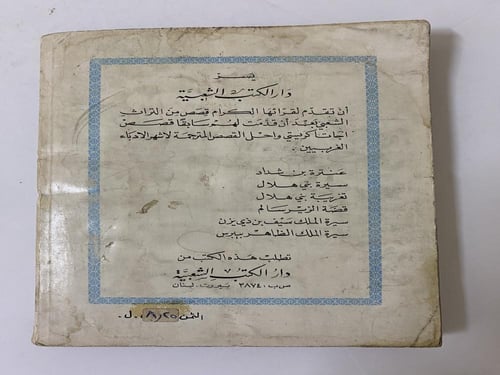 يسرّ
دار الكتب الشعبية
أن تقدّم لقرّائها الكرام قصص من التراث
الشعبي بعد أن قدّمت لهم سابقًا قصص
أجاثا كريستي وأحلى القصص المترجمة لأشهر الأدباء
الغربيين .
عنترة بن شداد
سيرة بني هلال
تغريبة بني هلال
قصة الزير سالم
سيرة الملك سيف بن ذي يزن
سيرة الملك الظاهر بيبرس
تطلب هذه الكتب من
دار الكتب الشعبية
ص.ب: ٣٨٧٤ بيروت . لبنان
الثمن ٨/٢٥ ل.